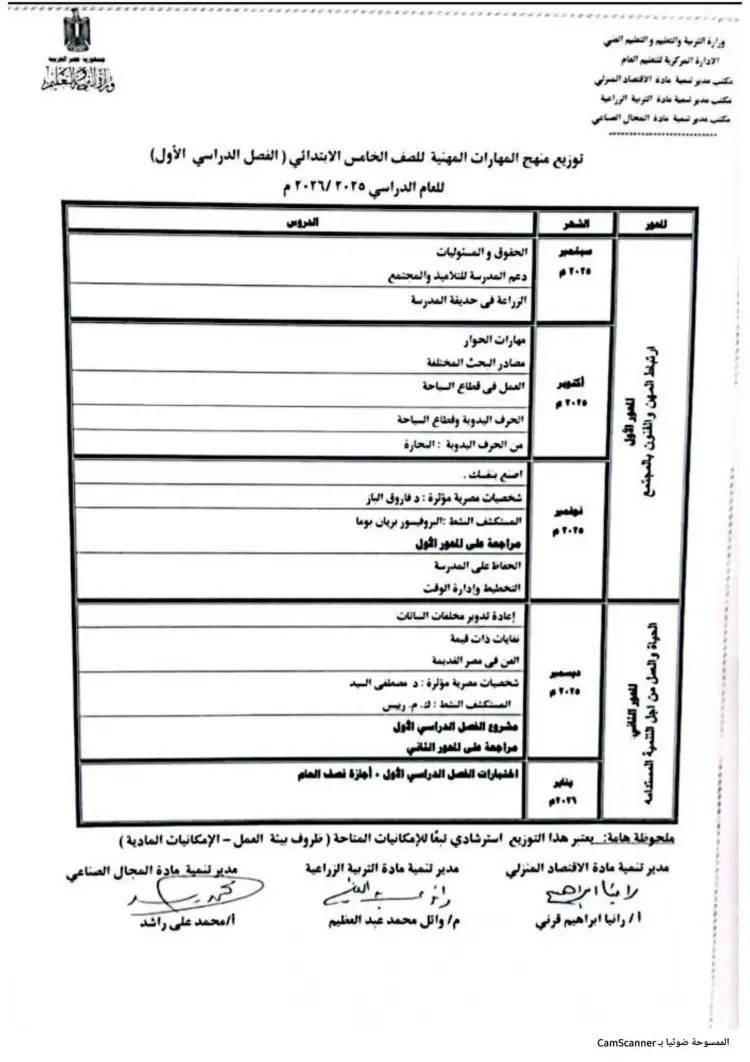 جمهورية مصر العربية
وزارة التربية والتعليم
وزارة التربية والتعليم والتعليم الفني
الادارة المركزية للتعليم العام
مكتب مدير تنمية مادة الاقتصاد المنزلي
مكتب مدير تنمية مادة التربية الزراعية
مكتب مدير تنمية مادة المجال الصناعي
توزيع منهج المهارات المهنية للصف الخامس الابتدائي ( الفصل الدراسي الأول)
للعام الدراسي ٢٠٢٥ /٢٠٢٦ م
المحور الشهر الدروس
ارتباط المهن والفنون بالمجتمع
المحور الأول
سبتمبر
٢٠٢٥ م
الحقوق و المسئوليات
دعم المدرسة للتلاميذ والمجتمع
الزراعة فى حديقة المدرسة
أكتوبر
٢٠٢٥ م
مهارات الحوار
مصادر البحث المختلفة
العمل فى قطاع السياحة
الحرف اليدوية وقطاع السياحة
من الحرف اليدوية : النجارة
نوفمبر
٢٠٢٥ م
اصنع بنفسك .
شخصيات مصرية مؤثرة : د فاروق الباز
المستكشف النشط :البروفيسور بريان بوما
مراجعة على المحور الأول
الحفاظ على المدرسة
التخطيط وإدارة الوقت
الحياة والعمل من اجل التنمية المستدامه
المحور الثاني
ديسمبر
٢٠٢٥ م
إعادة تدوير مخلفات النباتات
نفايات ذات قيمة
الفن فى مصر القديمة
شخصيات مصرية مؤثرة : د مصطفى السيد
المستكشف النشط : ك. م. رييس
مشروع الفصل الدراسي الأول
مراجعة على المحور الثاني
يناير
٢٠٢٦م
اختبارات الفصل الدراسي الأول + أجازة نصف العام
ملحوظة هامة: يعتبر هذا التوزيع استرشادي تبعًا للإمكانيات المتاحة ( ظروف بيئة العمل – الإمكانيات المادية )
مدير تنمية مادة الاقتصاد المنزلي مدير تنمية مادة التربية الزراعية مدير تنمية مادة المجال الصناعي
رانيا ابراهيم
أ / رانيا ابراهيم قرني م/ وائل محمد عبد العظيم أ/محمد على راشد
الممسوحة ضوئيا بـ CamScanner